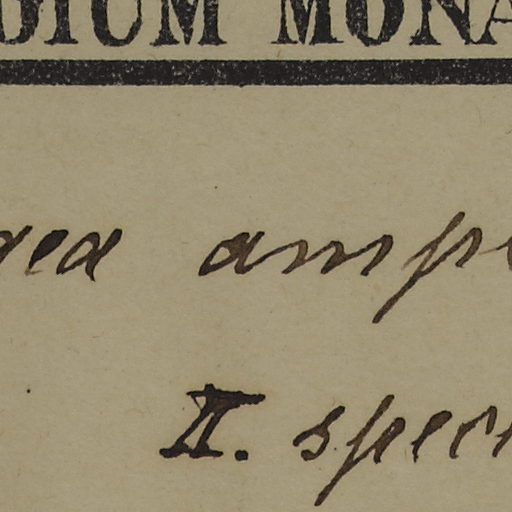 DIUM MONA
rea amp
II. speci